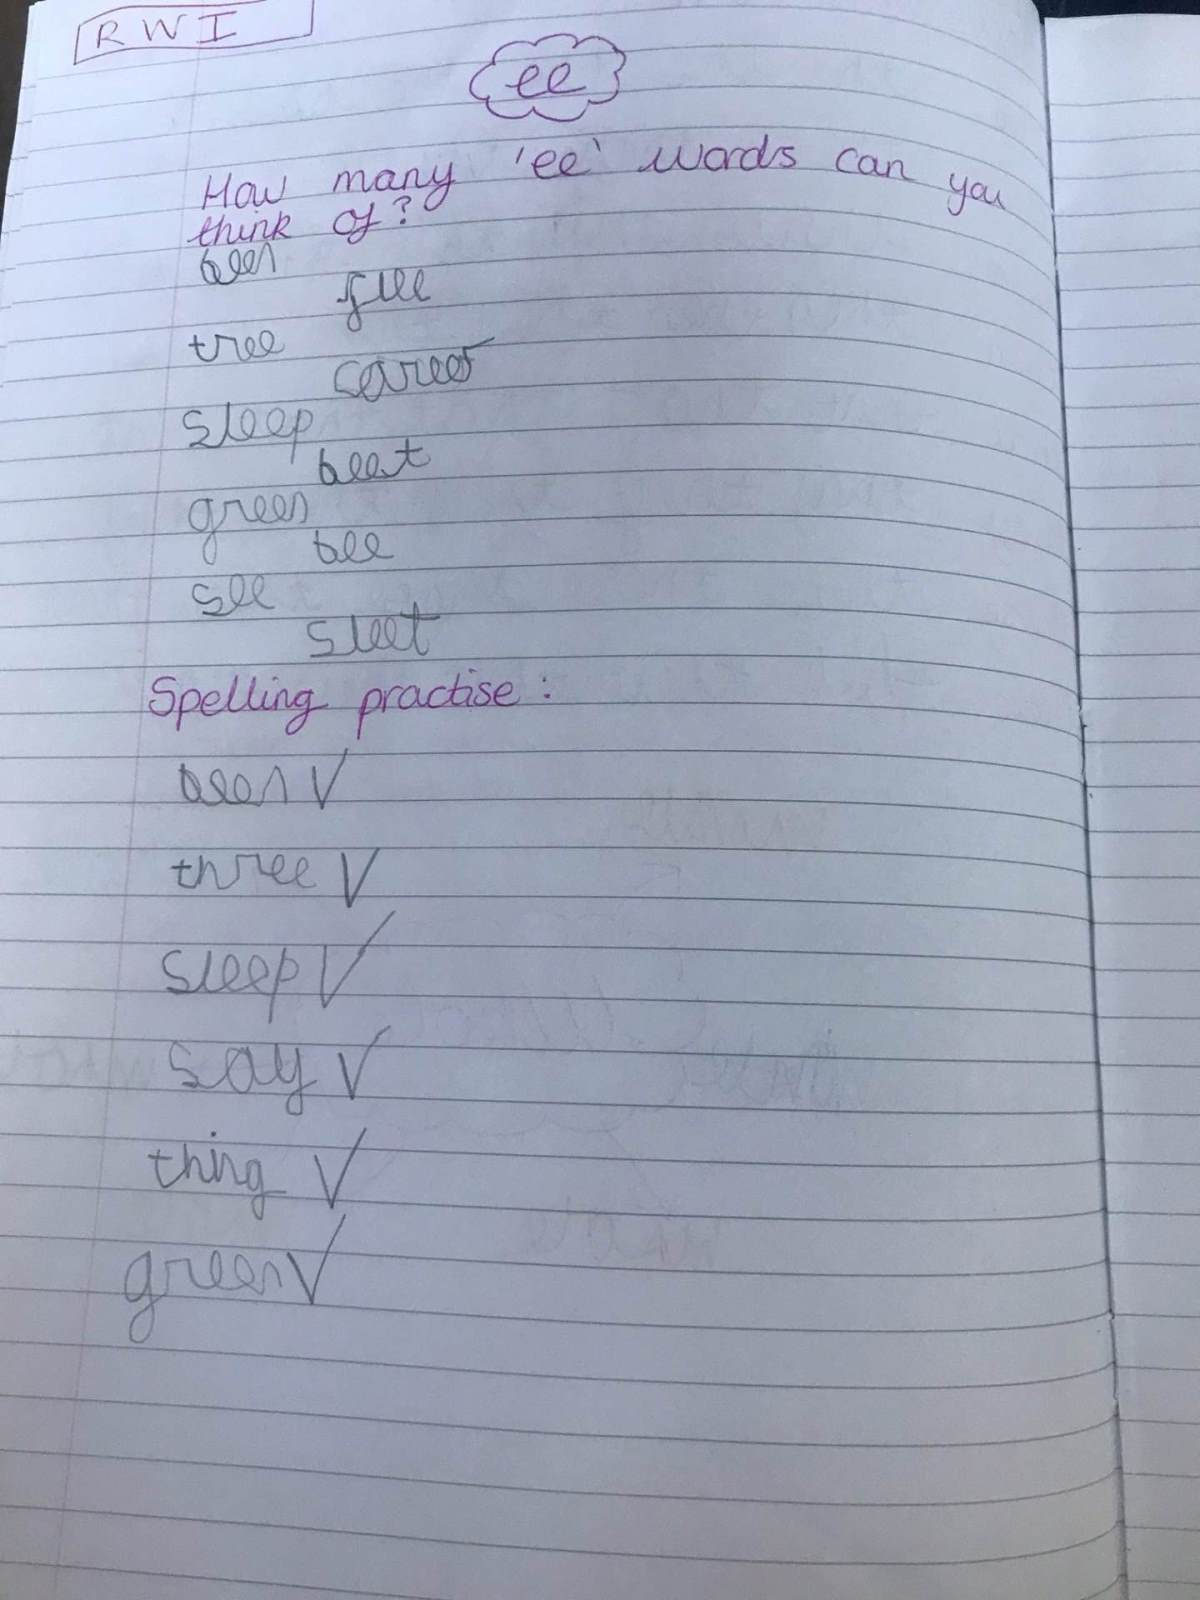 RWI
ee
How many 'ee' words can you
think of?
been
free
tree
career
sleep
beet
green
bee
see
sleet
Spelling practise:
been
three
sleep
say
thing
green